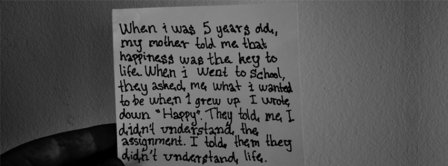 When i was 5 years old,
my mother told me that
happiness was the key to
life. When i went to school,
they asked, me, what i wanted
to be when I grew up. I wrote,
down "Happy". They told, me, I
didn't understand, the
assignment. I told, them they
didn't understand, life.